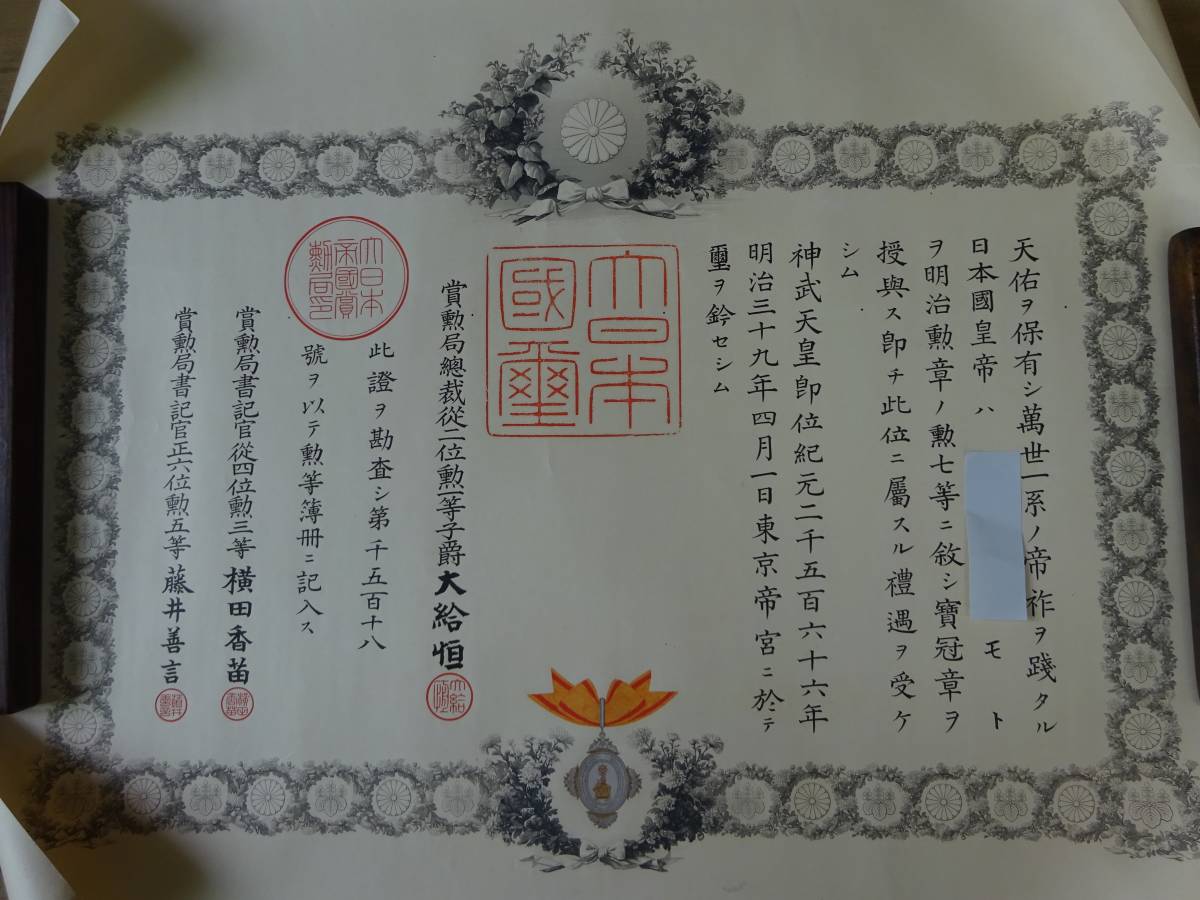 天佑ヲ保有シ萬世一系ノ帝祚ヲ踐タル
日本國皇帝ハ モト
ヲ明治勲章ノ勲七等ニ敘シ寶冠章ヲ
授與ス卽チ此位ニ屬スル禮遇ヲ受ケ
シム
神武天皇卽位紀元二千五百六十六年
明治三十九年四月一日東京帝宮ニ於テ
璽ヲ鈐セシム
大日本
國璽
賞勲局總裁從二位勲一等子爵大給恒
大給恒
此證ヲ勘査シ第千五百十八
號ヲ以テ勲等簿册ニ記入ス
大日本
帝國賞
勲局印
賞勲局書記官從四位勲三等横田香苗
賞勲局書記官正六位勲五等藤井善言